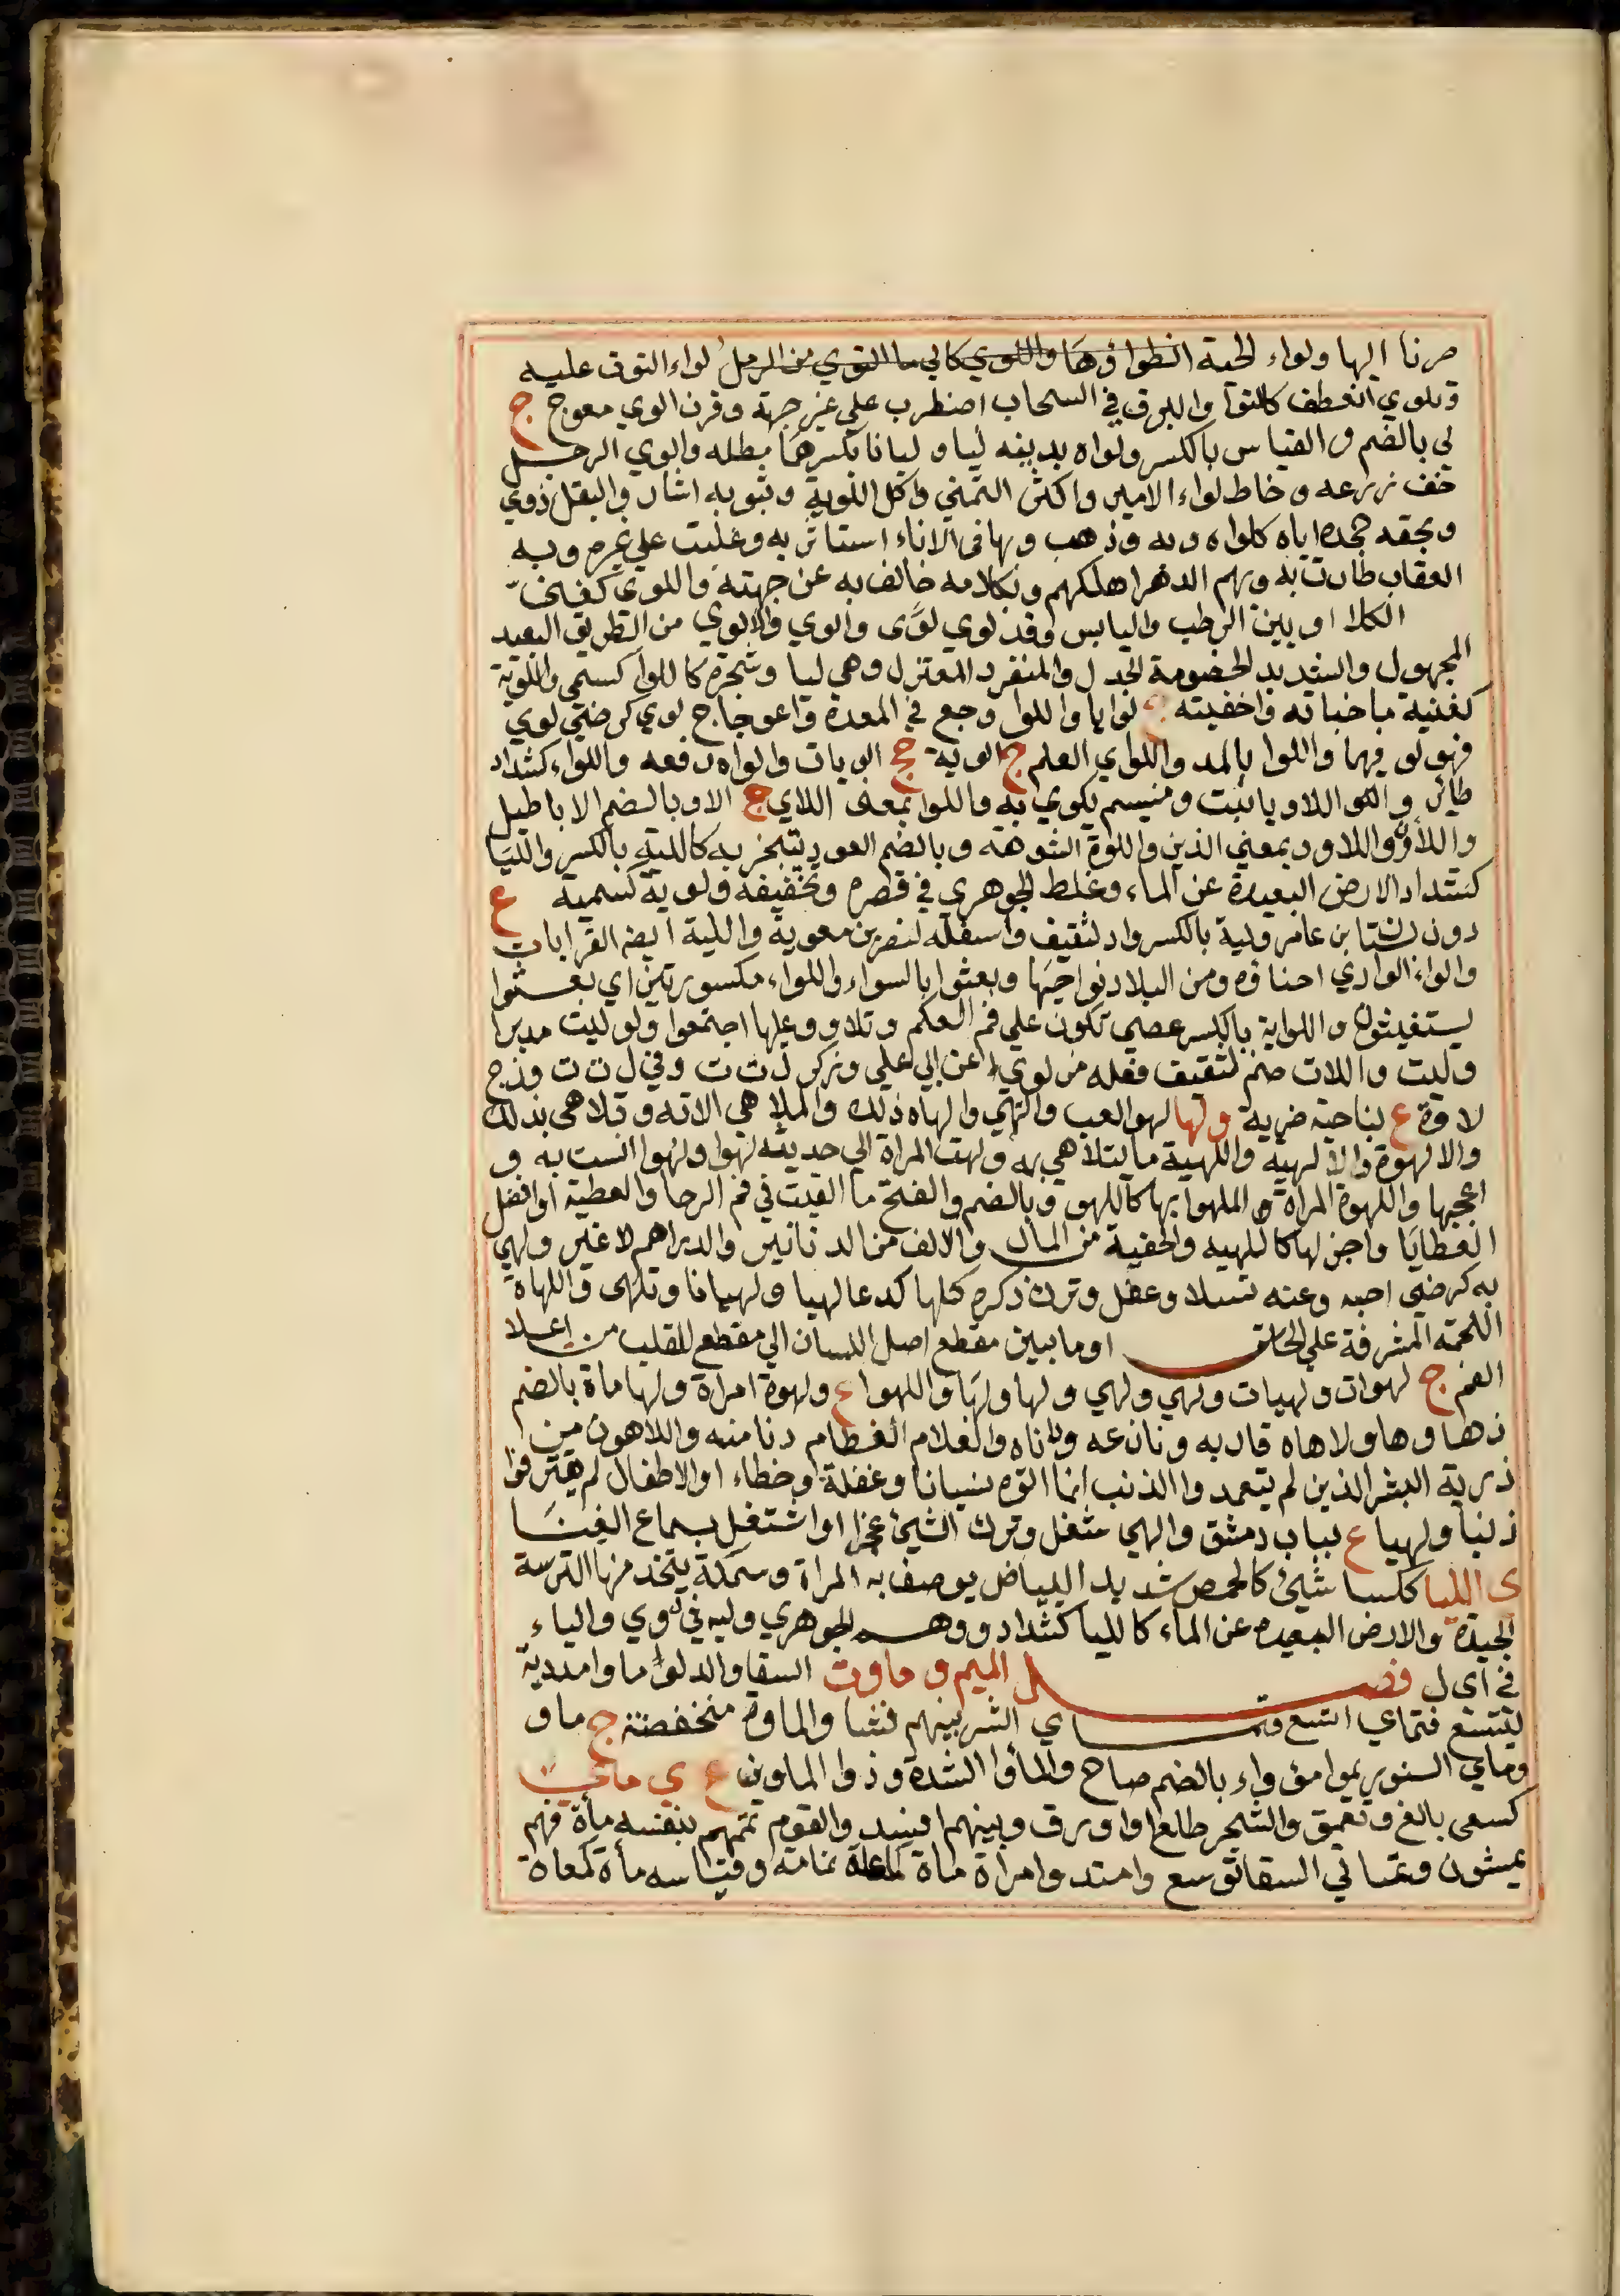 صرنا اليها ولواء الحية انطواؤها واللوي كالي ما التوي من الرمل لواء التوت عليه
وتلوي انعطف كالتوا والبرق في السحاب اضطرب علي غير جهة وقرن الوي معوج ج
لي بالضم والقياس بالكسر ولواه بدينه ليا وليانا بكسرهما مطله والوي الرجل
خف زرعه وخاط لواء الامير واكثر التمني واكل اللوية وبثوبه اشار والبقل ذوي
وبحقه جحده اياه كلواه وبه وذهب وبما في الاناء استاثر به وغلبت علي غيره وبه
العقاب طارت به وبهم الدهر اهلكهم وبكلامه خالف به عن جهته واللوي كغني
الكلا او بين الرطب واليابس وقد لوي لوى والوي والالوي من الطريق البعيد
المجهول والشديد الخصومة الجدل والمنفرد المعتزل وهي ليا وشجرة كاللوا كسمي واللوية
كغنية ما خباته واخفيته ج لوايا واللوا وجع في المعدة واعوجاج لوي كرضي لوي
فهو لو فيهما واللوا بالمد واللواي العلم ج الوية جج الويات والواه رفعه واللواء كشداد
طائر واللو اللاويا نبت وميسم يكوي به واللوا بمعنى اللاي ج الاو بالضم الاباطيل
واللاؤن واللاوو بمعني الذين واللوة الشوهة وبالضم العود يتبخر به كاللية بالكسر والليا
كشداد الارض البعيدة عن الماء وغلط الجوهري في قصره وتخفيفه ولوية كسمية ع
دون بستا بن عامر ولية بالكسر واد لثقيف واسفله لنصر بن معوية واللية ايضه القرابات
والواء الوادي احناؤه ومن البلاد نواحيها وبعثوا بالسواء واللواء مكسورتين اي بعثوا
يستغيثون واللواية بالكسر عصي تكون علي فم العكم وتلاووا عليها اجتمعوا ولو ليت مدبرا
وليت واللات صنم لثقيف فعله من لوي عن ابي علي وذكر ل ت ت وفي ل ت ت وزج
لاوة ع بناحية ضرية ولها لهو العب والتهي والهاه ذلك والملاهي الاته وتلاهى بذلك
والالهوة والالهية واللهية ما يتلاهي به ولهت المراة الي حديثه لهوا ولهوا انست به و
اعجبها واللهوة المراة الملهوا بها كاللهو وبالضم والفتح ما القيت في فم الرحا والعطية او افضل
العطايا واجزلها كاللهيه والحفية من المال والالف من الدنانير والدراهم لا غير ولهي
به كرضي احبه وعنه تسلا وغفل وترك ذكره كلها كدعا لهيا ولهيانا وتلهى واللهاة
اللحمة المشرفة علي الحلق او ما بين مقطع اصل اللسان الي مقطع القلب من اعلا
الفم ج لهوات ولهيات ولهي ولهي ولها ولها واللهوا ع ولهوة امراة ولها ماة بالضم
زهاوها ولاهاه قاربه ونازعه وداناه والغلام الفطام دنا منه واللاهون من
ذرية البشر الذين لم يتعمدوا الذنب انما اتوه نسيانا وغفلة وخطاء او الاطفال لم يقترفوا
ذنبا ولهيا ع بباب دمشق والهي شغل وترك الشيئ عجزا او اشتغل بسماع الغنا
ى الليا ككسا شيئ كالحمص شديد البياض يوصف به المراة وسمكة يتخذ منها الترسة
الجيدة والارض البعيده عن الماء كالليا كشداد ووهم الجوهري وليه في لوي والياء
في اي ل فصل الميم و ماوت السقا والدلو ماوا مددته
ليتسع فتماي اتسع وتماي الشر بينهم فشا والماوة منخفضة ج ماو
وماي السنور يموا مؤواء بالضم صاح والماوا الشدة وذوا الماوين ع ي ماي
كسعى بالغ وتعمق والشجر طلع او اورق وبينهم افسد والقوم تممهم بنفسه ماة فهم
يمئون وتماي السقا توسع وامتد وامراة ماة كماعة نمامة وقياسه ماة كمعاة